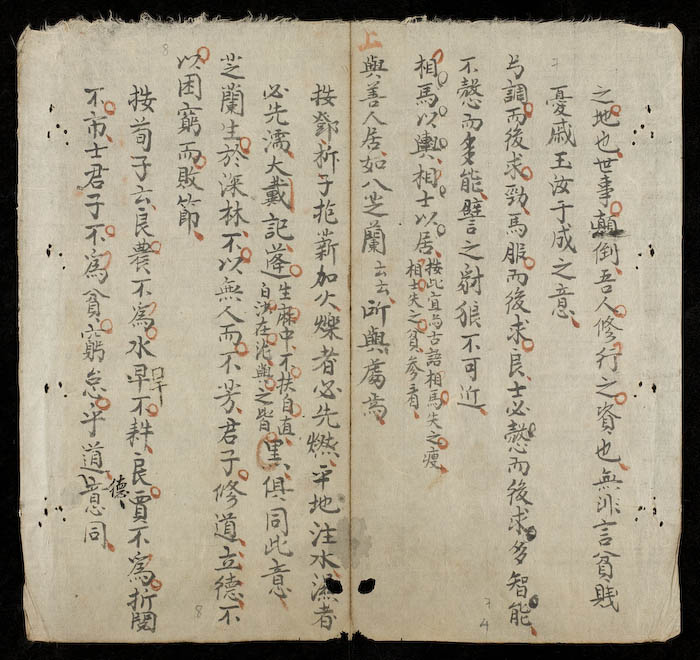 之地也世事顛倒吾人修行之資也無非言貧賤
憂戚玉汝于成之意
弓調而後求勁馬服而後求良士必慤而後求多智能
不慤而多能譬之豺狼不可近
相馬以輿相士以居按此宜与古語相馬失之瘦
相士失之貧參看
上
與善人居如入芝蘭云云所與處焉
按鄧析子抱薪加火爍者必先燃平地注水濕者
必先濡大戴記蓬生麻中不扶自直
白沙在泥與之皆黑俱同此意
芝蘭生於深林不以無人而不芳君子修道立德不
以困窮而敗節
按荀子云良農不為水旱不耕良賈不為折閱
不市士君子不為貧窮怠乎道意同
德
7
8
7
4
8